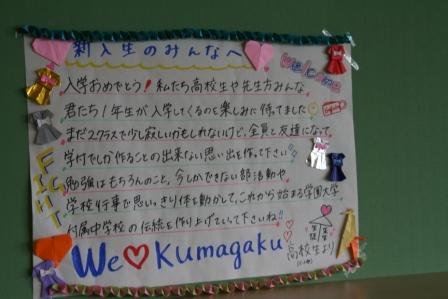 新入生のみんなへ
Welcome
入学おめでとう！私たち高校生や先生方みんな
君たち1年生が入学してくるのを楽しみに待ってました
まだ2クラスで少し寂しいかもしれないけど、全員と友達になって、
学付でしか作ることの出来ない思い出を作って下さい!!
勉強はもちろんのこと、今しかできない部活動や
学校行事で思いっきり体を動かして、これから始まる学園大学
付属中学校の伝統を作り上げていって下さいね!!
FIGHT
We♡Kumagaku
高校生より